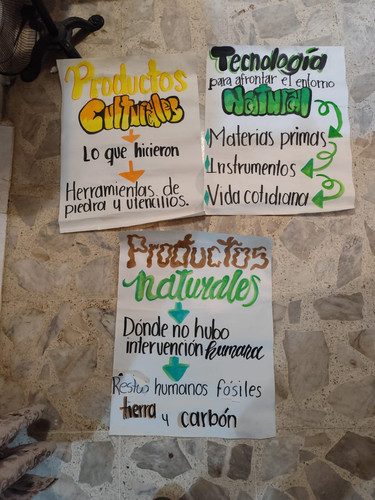 Productos
Culturales
Lo que hicieron
Herramientas de
piedra y utencilios.
Tecnología
para afrontar el entorno
Natural
Materias primas
Instrumentos
Vida cotidiana
Productos
naturales
Dónde no hubo
intervención humana
Restos humanos fósiles
tierra y carbón